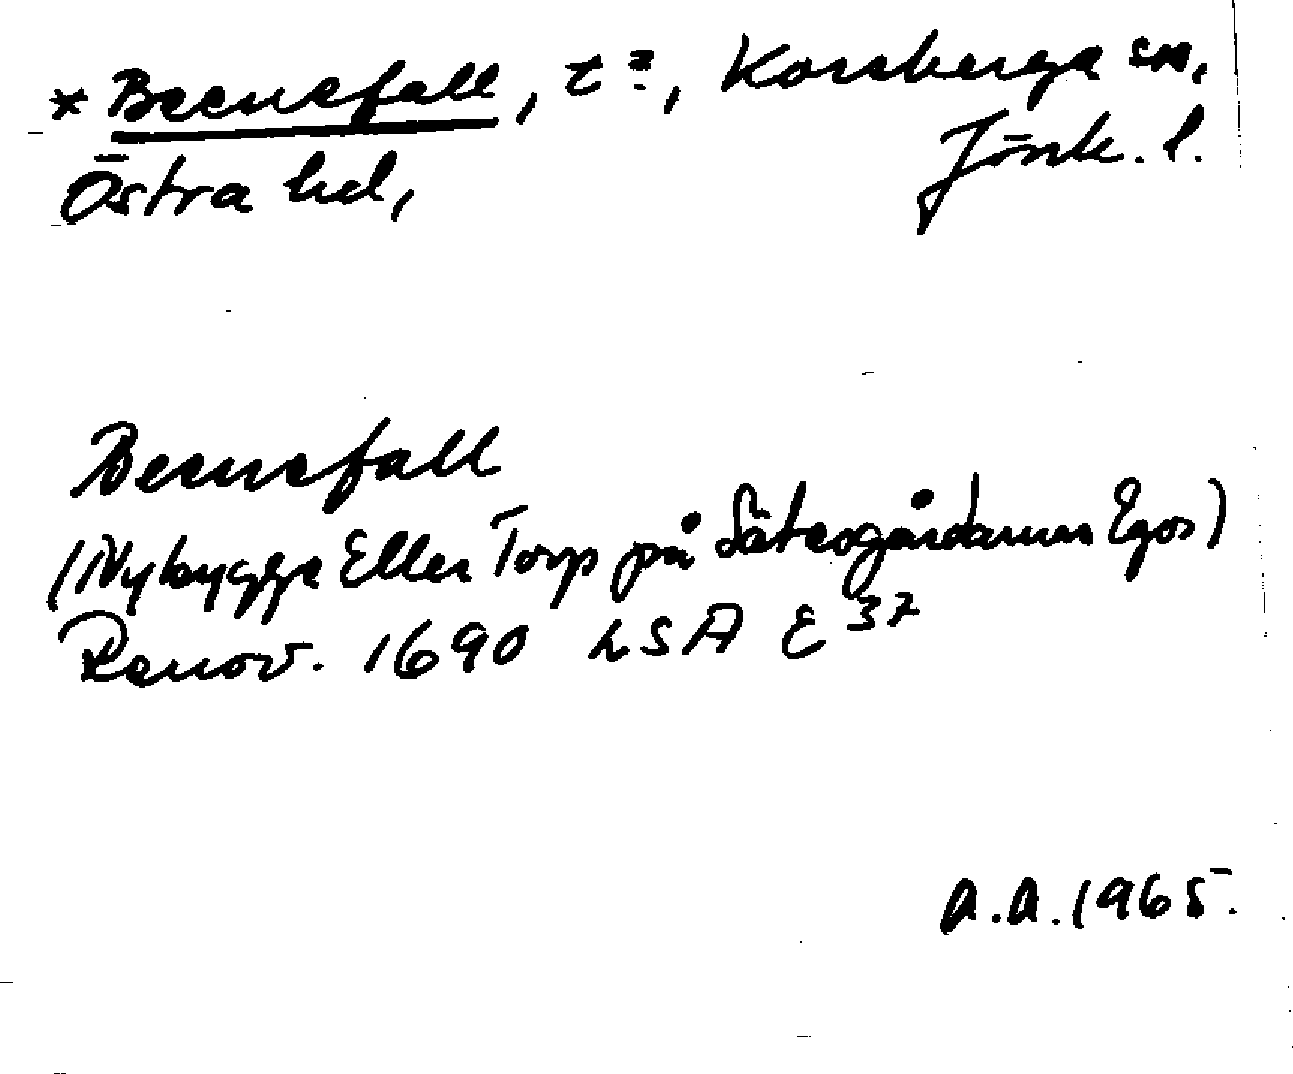 * Beensfall, t?, Korsberga sn,
Östra hd, Jönk. l.
Beensfall
(Nybygge Eller Torp på Säteogårdarnes Egor)
Renov. 1690 LSA E 37
A.A. 1965.